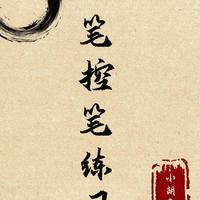 笔控笔练习
小胡